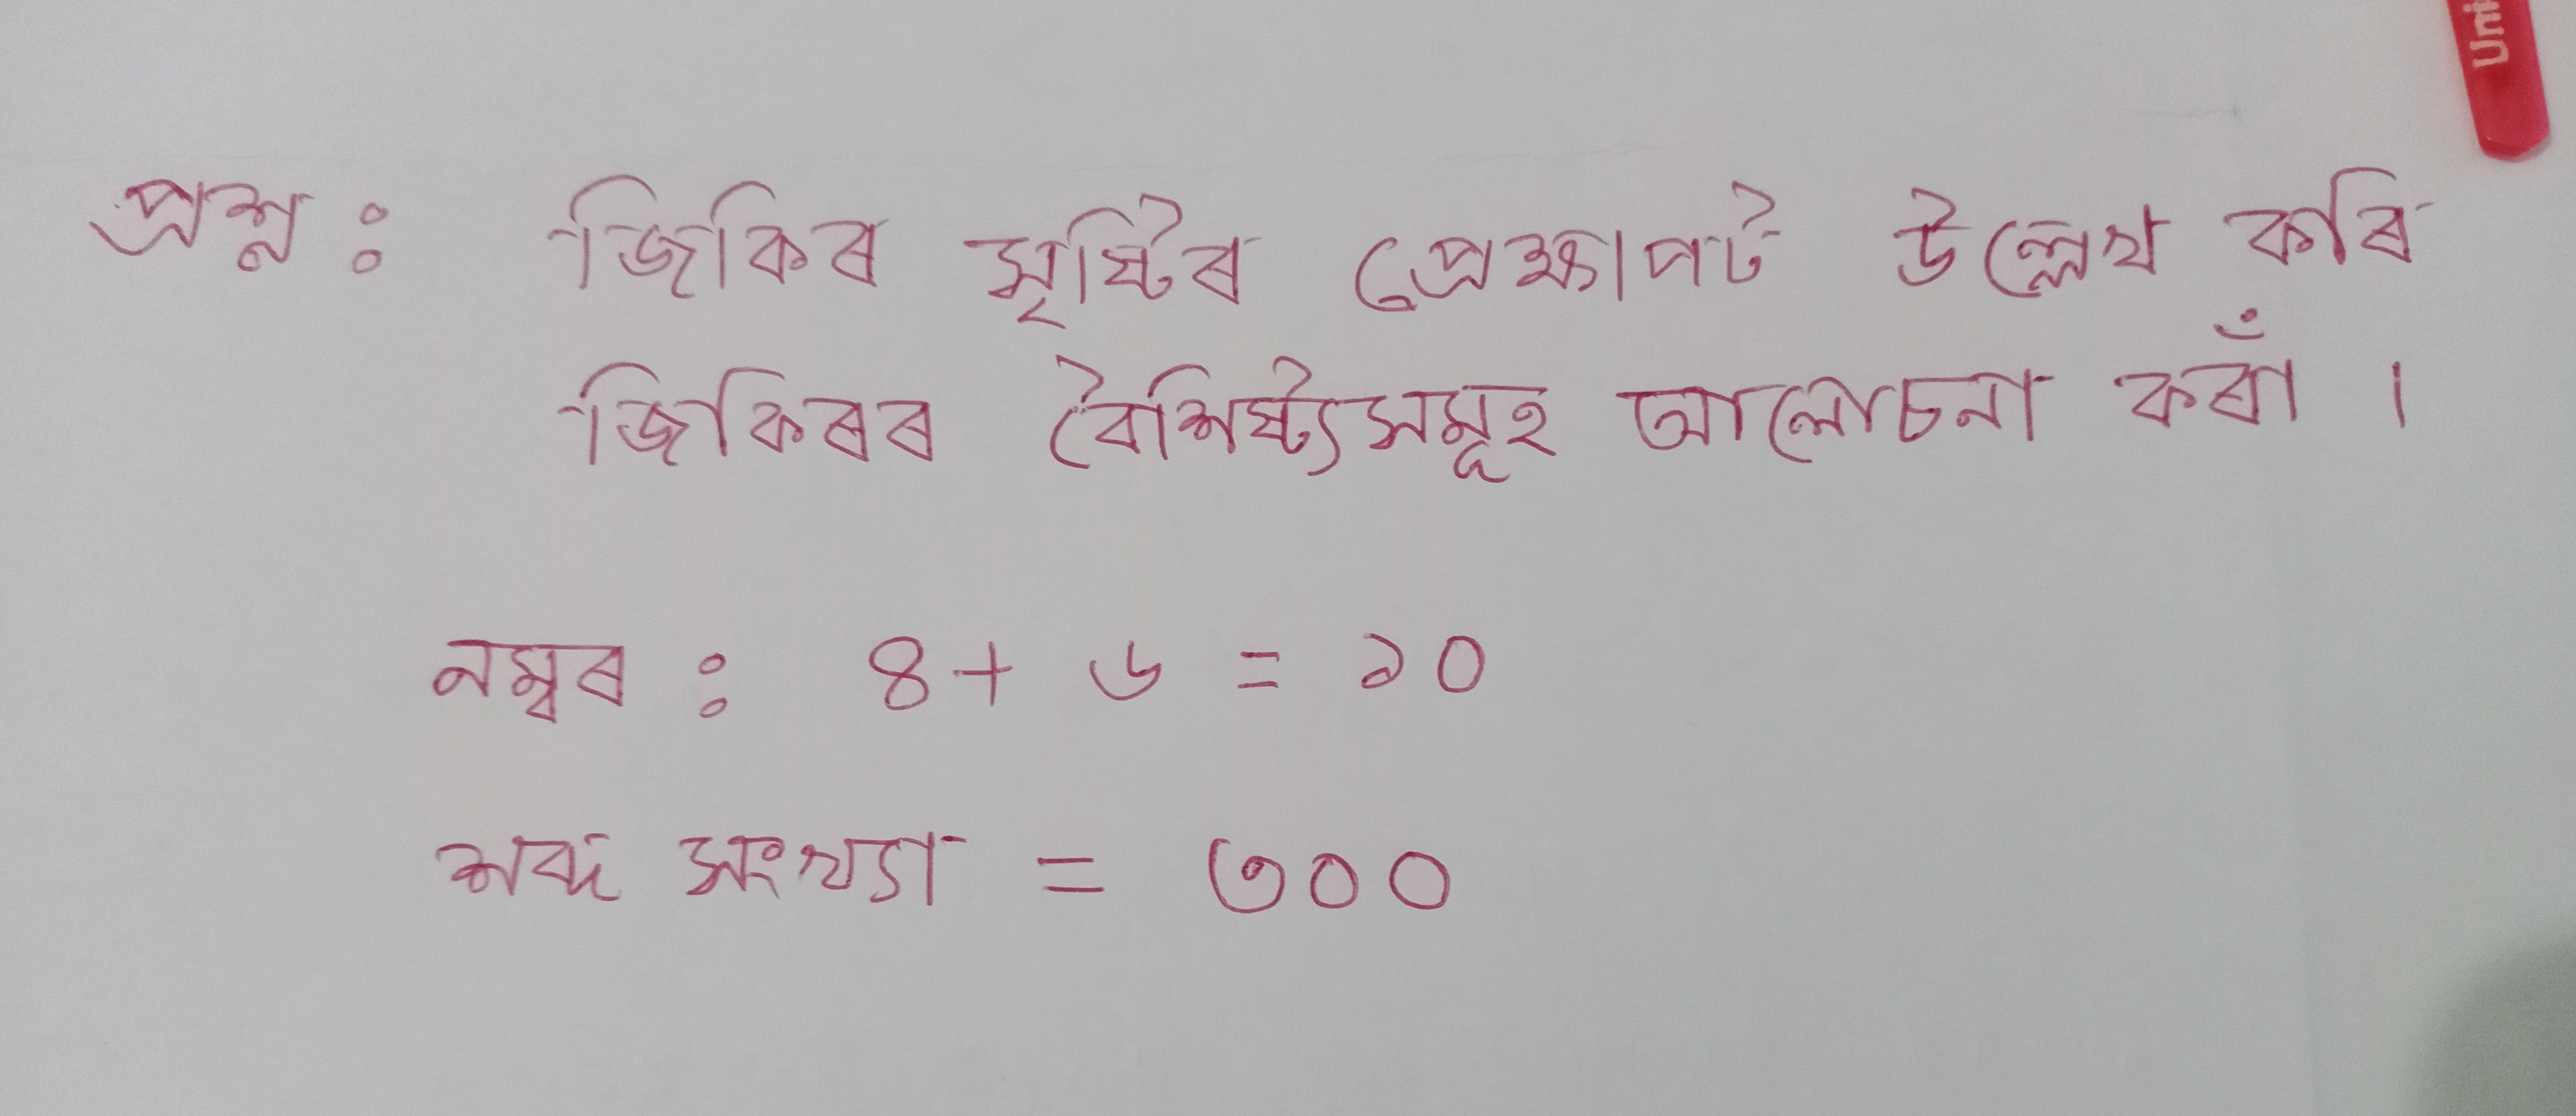 প্ৰশ্ন : জিকিৰ সৃষ্টিৰ প্ৰেক্ষাপট উল্লেখ কৰি
জিকিৰৰ বৈশিষ্ট্যসমূহ আলোচনা কৰাঁ ।
নম্বৰ : ৪ + ৬ = ১০
শব্দ সংখ্যা = ৩০০
Uni